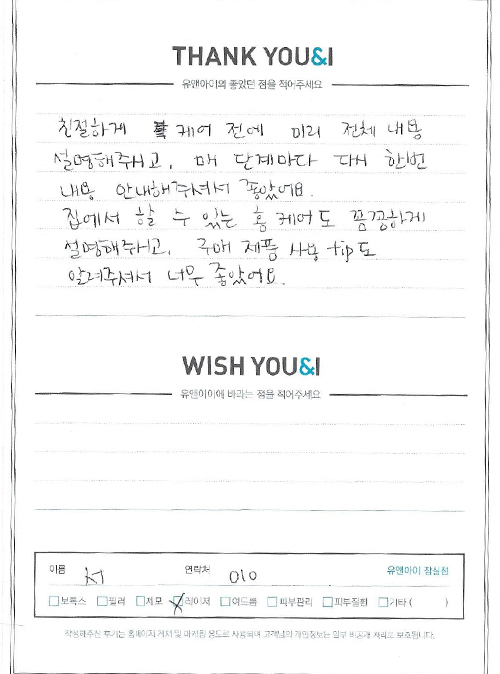 THANK YOU&I
유앤아이의 좋았던 점을 적어주세요
친절하게 케어 전에 미리 전체 내용
설명해주시고, 매 단계마다 다시 한번
내용 안내해주셔서 좋았어요.
집에서 할 수 있는 홈 케어도 꼼꼼하게
설명해주시고, 구매 제품 사용 tip도
알려주셔서 너무 좋았어요.
WISH YOU&I
유앤아이에 바라는 점을 적어주세요
이름 서 연락처 010 유앤아이 잠실점
보톡스 필러 제모 레이저 여드름 피부관리 피부질환 기타 ( )
작성해주신 후기는 홈페이지 게재 및 마케팅 용도로 사용되며 고객님의 개인정보는 일부 비공개 처리로 보호됩니다.